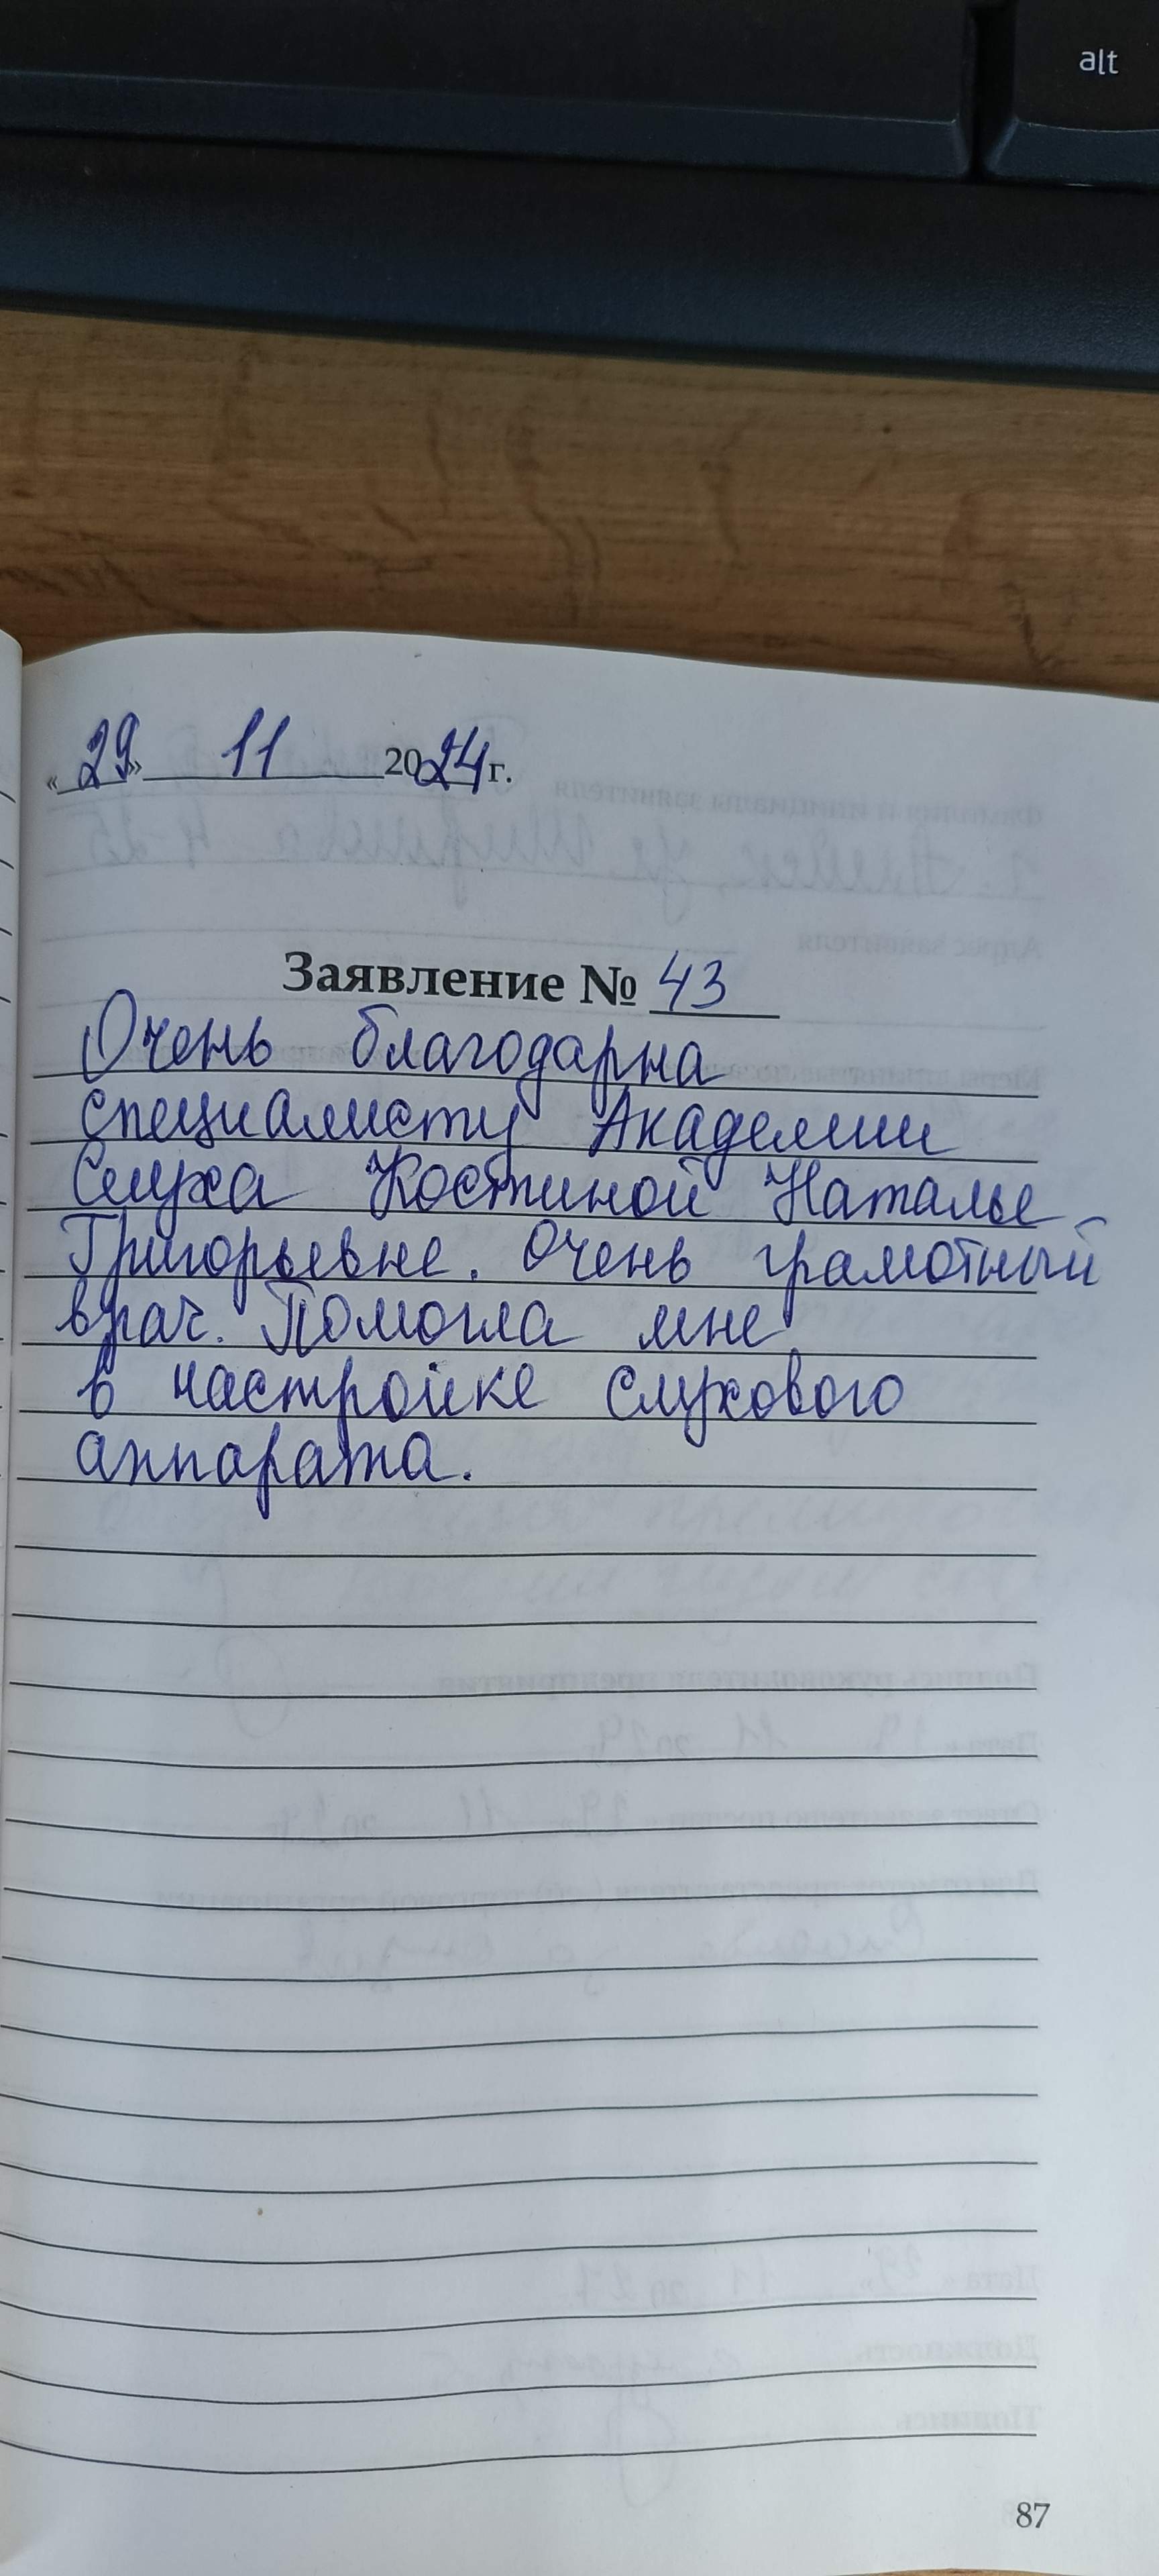 alt
«29» 11 2024 г.
Заявление № 43
Очень благодарна
специалисту Академии
Слуха Костиной Наталье
Григорьевне. Очень грамотный
врач. Помогла мне
в настройке слухового
аппарата.
87